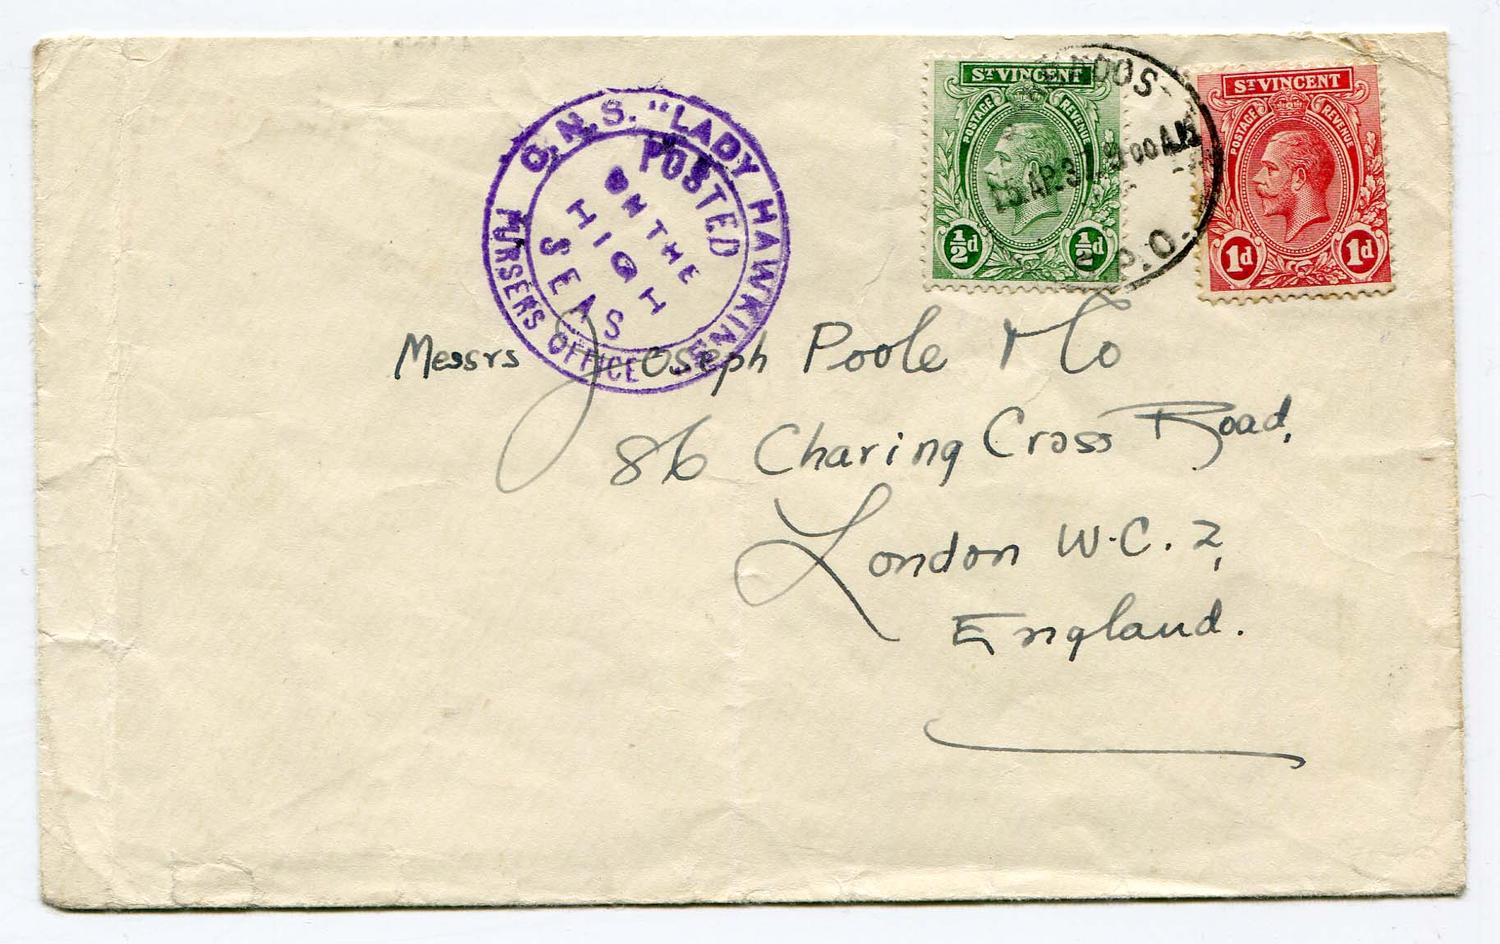 C.N.S. "LADY HAWKINS"
PURSERS OFFICE
POSTED
ON THE
HIGH
SEAS
ST VINCENT
POSTAGE REVENUE
½d ½d
ST VINCENT
POSTAGE REVENUE
1d 1d
15.AP.37. 9:00AM
G.P.O.
Messrs Joseph Poole & Co
86 Charing Cross Road,
London W.C. 2,
England.